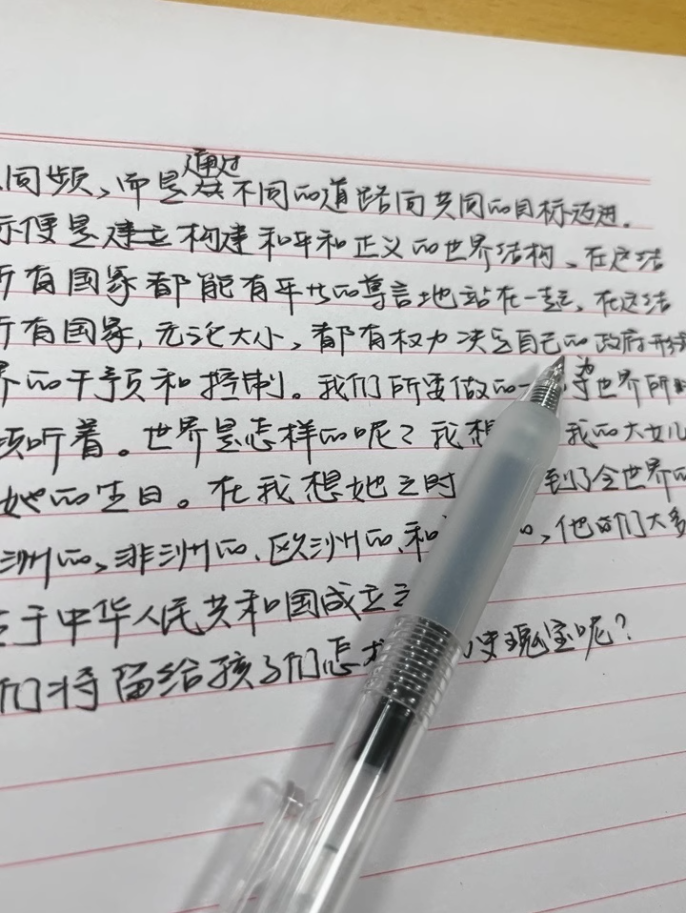 同频、而是通过不同的道路向共同的目标迈进.
便是建立构建和平和正义的世界结构、在这结
有国家都能有平等的尊言地站在一起、在这结
有国家,无论大小、都有权力决定自己的政府形
的干预和控制。我们所要做的一 世界所
听着。世界是怎样的呢?我想 我的大女儿
她的生日。在我想她之时 到了全世界
洲的、非洲的、欧洲的、和 、他们大多
于中华人民共和国成立之
们将留给孩子们怎 呢?